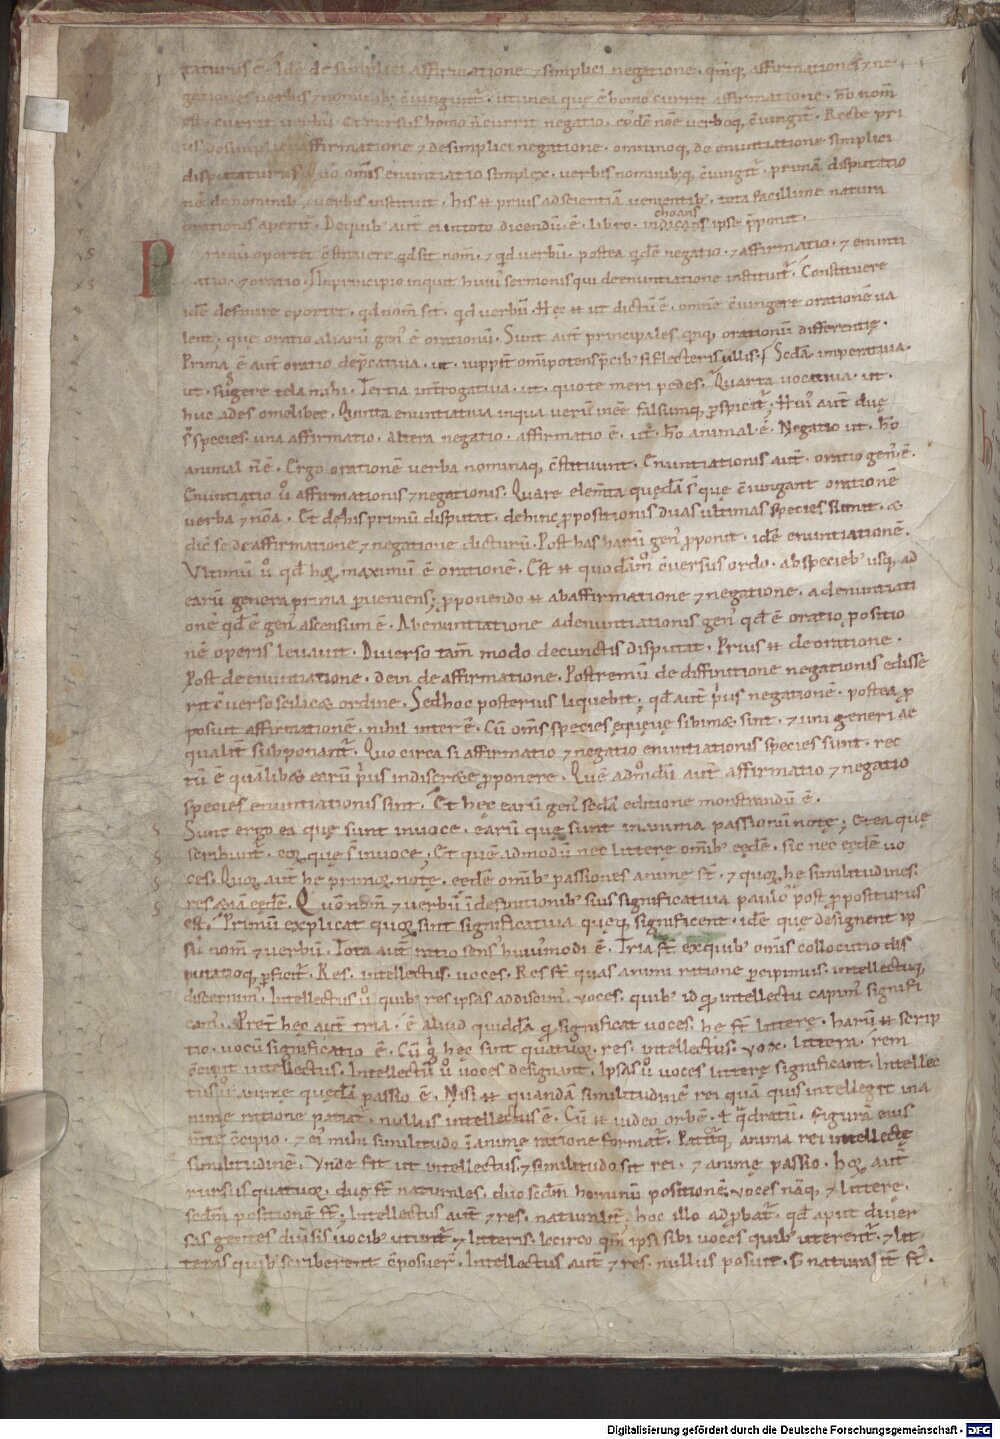 taturus ē. Idē de simplici affirmatione ⁊ simplici negatione. qm̄q; affirmationes ⁊ ne
gationes verbis ⁊ nominib; c̄iungunt᷑. ut in ea quę ē homo currit affirmatione. hō nom̄
est. currit verbū. Et rursus homo n̄ currit negatio. eodē nōe verboq; c̄iungit᷑. Recte pri
us de simplici affirmatione ⁊ de simplici negatione. omninoq; de enuntiatione simplici
disputaturus. Quō om̄is enuntiatio simplex. verbis nominibq; c̄iungit᷑. primā disputatio
nē de nominib; ⁊ verbis instituit. his et prius ad scientiā venientib;. tota facillime natura
orationis aperit᷑. De quib; aut̄ ei in toto dicendū ē. libro. indicans ipse p̄ponit.
choans
Primū oportet c̄stituere qd sit nom̄. ⁊ qd verbū. postea qd ē negatio. ⁊ affirmatio. ⁊ enunti
atio. ⁊ oratio. In principio inquit huius sermonis qui de enuntiatione instituit᷑. Constituere
idē definire oportet. qd nom̄ sit. qd verbū. Hęc et ut dictū ē. omnē c̄iungere orationē va
lent. quę oratio aliarū gen̄ ē orationū. Sunt aut̄ principales quinq; orationū differentię.
Prima ē aut̄ oratio dep̄cativa. ut. iuppit̄ omnipotens p̄cib; si flecteris ullis. Scd̄a imperativa.
ut. suggere tela mihi. Tertia int̄rogativa. ut. quo te meri pedes. Quarta vocativa. ut.
huc ades o melibee. Quinta enuntiativa in qua verū inēē falsumq; p̄spicit᷑. Hui' aut̄ duę
s̄ species. una affirmatio. altera negatio. affirmatio ē. ut. hō animal ē. Negatio ut. hō
animal n̄ ē. Ergo orationē verba nominaq; c̄stituunt. Enuntiationis aut̄. oratio gen' ē.
Enuntiatio ū affirmationis ⁊ negationis. Quare elem̄ta quędā s̄ quę c̄iungant orationē
verba ⁊ nōa. Et de his primū disputat. dehinc p̄positionis duas ultimas species sumit. &
dic̄ se de affirmatione ⁊ negatione dicturū. Post has harū gen' p̄ponit. idē enuntiationē.
Ultimū ū qd hoꝝ maximū ē orationē. Est et quodām̄ c̄versus ordo. ab specieb; usq; ad
earū genera prima p̄veniens; p̄ponendo et ab affirmatione ⁊ negatione. ad enuntiati
onē qd ē gen' ascensum ē. Ab enuntiatione ad enuntiationis gen' qd ē oratio positio
nē operis levavit. Diverso tam̄ modo de cunctis disputat. Prius et de oratione.
Post de enuntiatione. dein de affirmatione. Postremū de diffinitione negationis edisse
rit c̄verso scilic& ordine. Sed hoc posterius liquebit. qd aut̄ p̄us negationē. postea p̄
posuit affirmationē. nihil inter ē. Cū om̄s species ęquęvę sibimet sunt. ⁊ uni generi ae
qualit̄ subponant᷑. Quo circa si affirmatio ⁊ negatio enuntiationis species sunt. rec
tū ē quālibet earū p̄us indiscrete p̄ponere. Quē adm̄dū aut̄ affirmatio ⁊ negatio
species enuntiationis sint. Et hęc earū gen' scd̄a editione monstrandū ē.
Sunt ergo ea quę sunt in voce. earū quę sunt in anima passionū notę; et ea quę
scribunt᷑. eoꝝ quę s̄ in voce; Et quē admodū nec litterę om̄ib; eędē. sic nec eędē vo
ces. Quoꝝ aut̄ hę primoꝝ notę. eędē omib; passiones animę s̄t. ⁊ quoꝝ hę similitudines.
res etiā eędē. Quō nom̄ ⁊ verbū ī definitionib; suis significativa paulo post p̄positurus
est. Primū explicat quoꝝ sint significativa quęq; significent. idē quę designent ip
sū nom̄ ⁊ verbū. Tota aut̄ ratio sens' huiusmodi ē. Tria s̄t ex quib; omis collocutio dis
putatioq; p̄ficit᷑. Res. intellectus. voces. Res s̄t quas animi ratione p̄cipimus. intellectuq;
discernim'. Intellectus ū quib; res ipsas addiscim'. voces. quib; id qd intellectu capim' signifi
cam'. Pret̄ hęc aut̄ tria. ē aliud quiddā qd significat voces. hę s̄t litterę. harū et scrip
tio. vocū significatio ē. Cū g̊ hęc sint quatuor. res. intellectus. vox. littera. rem
c̄cipit intellectus. Intellectū ū voces designant. Ipsas ū voces litterę significant. Intellec
tus ū animę quędā passio ē. Nisi et quandā similitudinē rei quā quis intellegit in a
nimę ratione patiat᷑. nullus intellectus ē. Cū et video orbē. ł q̄dratū. figurā eius
m̄te c̄cipio. ⁊ ei' mihi similitudo ī animę ratione format᷑. Patit᷑q; anima rei intellectę
similitudinē. Unde fit ut intellectus ⁊ similitudo sit rei. ⁊ animę passio. hoꝝ aut̄
rursus quatuoꝝ. duę s̄t naturales. duo scd̄m hominū positionē; voces nāq; ⁊ litterę.
scd̄m positionē s̄t; Intellectus aut̄ ⁊ res. naturalit̄. hoc illo adp̄bat᷑. qd aput diver
sas gentes div̄sis vocib; utunt᷑ ⁊ litteris. Iccirco qm̄ ipsi sibi voces quib; uterent᷑. ⁊ lit
teras quib; scriberent c̄posuer̄. Intellectus aut̄ ⁊ res. nullus posuit. s; naturalit̄ s̄t.
Digitalisierung gefördert durch die Deutsche Forschungsgemeinschaft - DFG